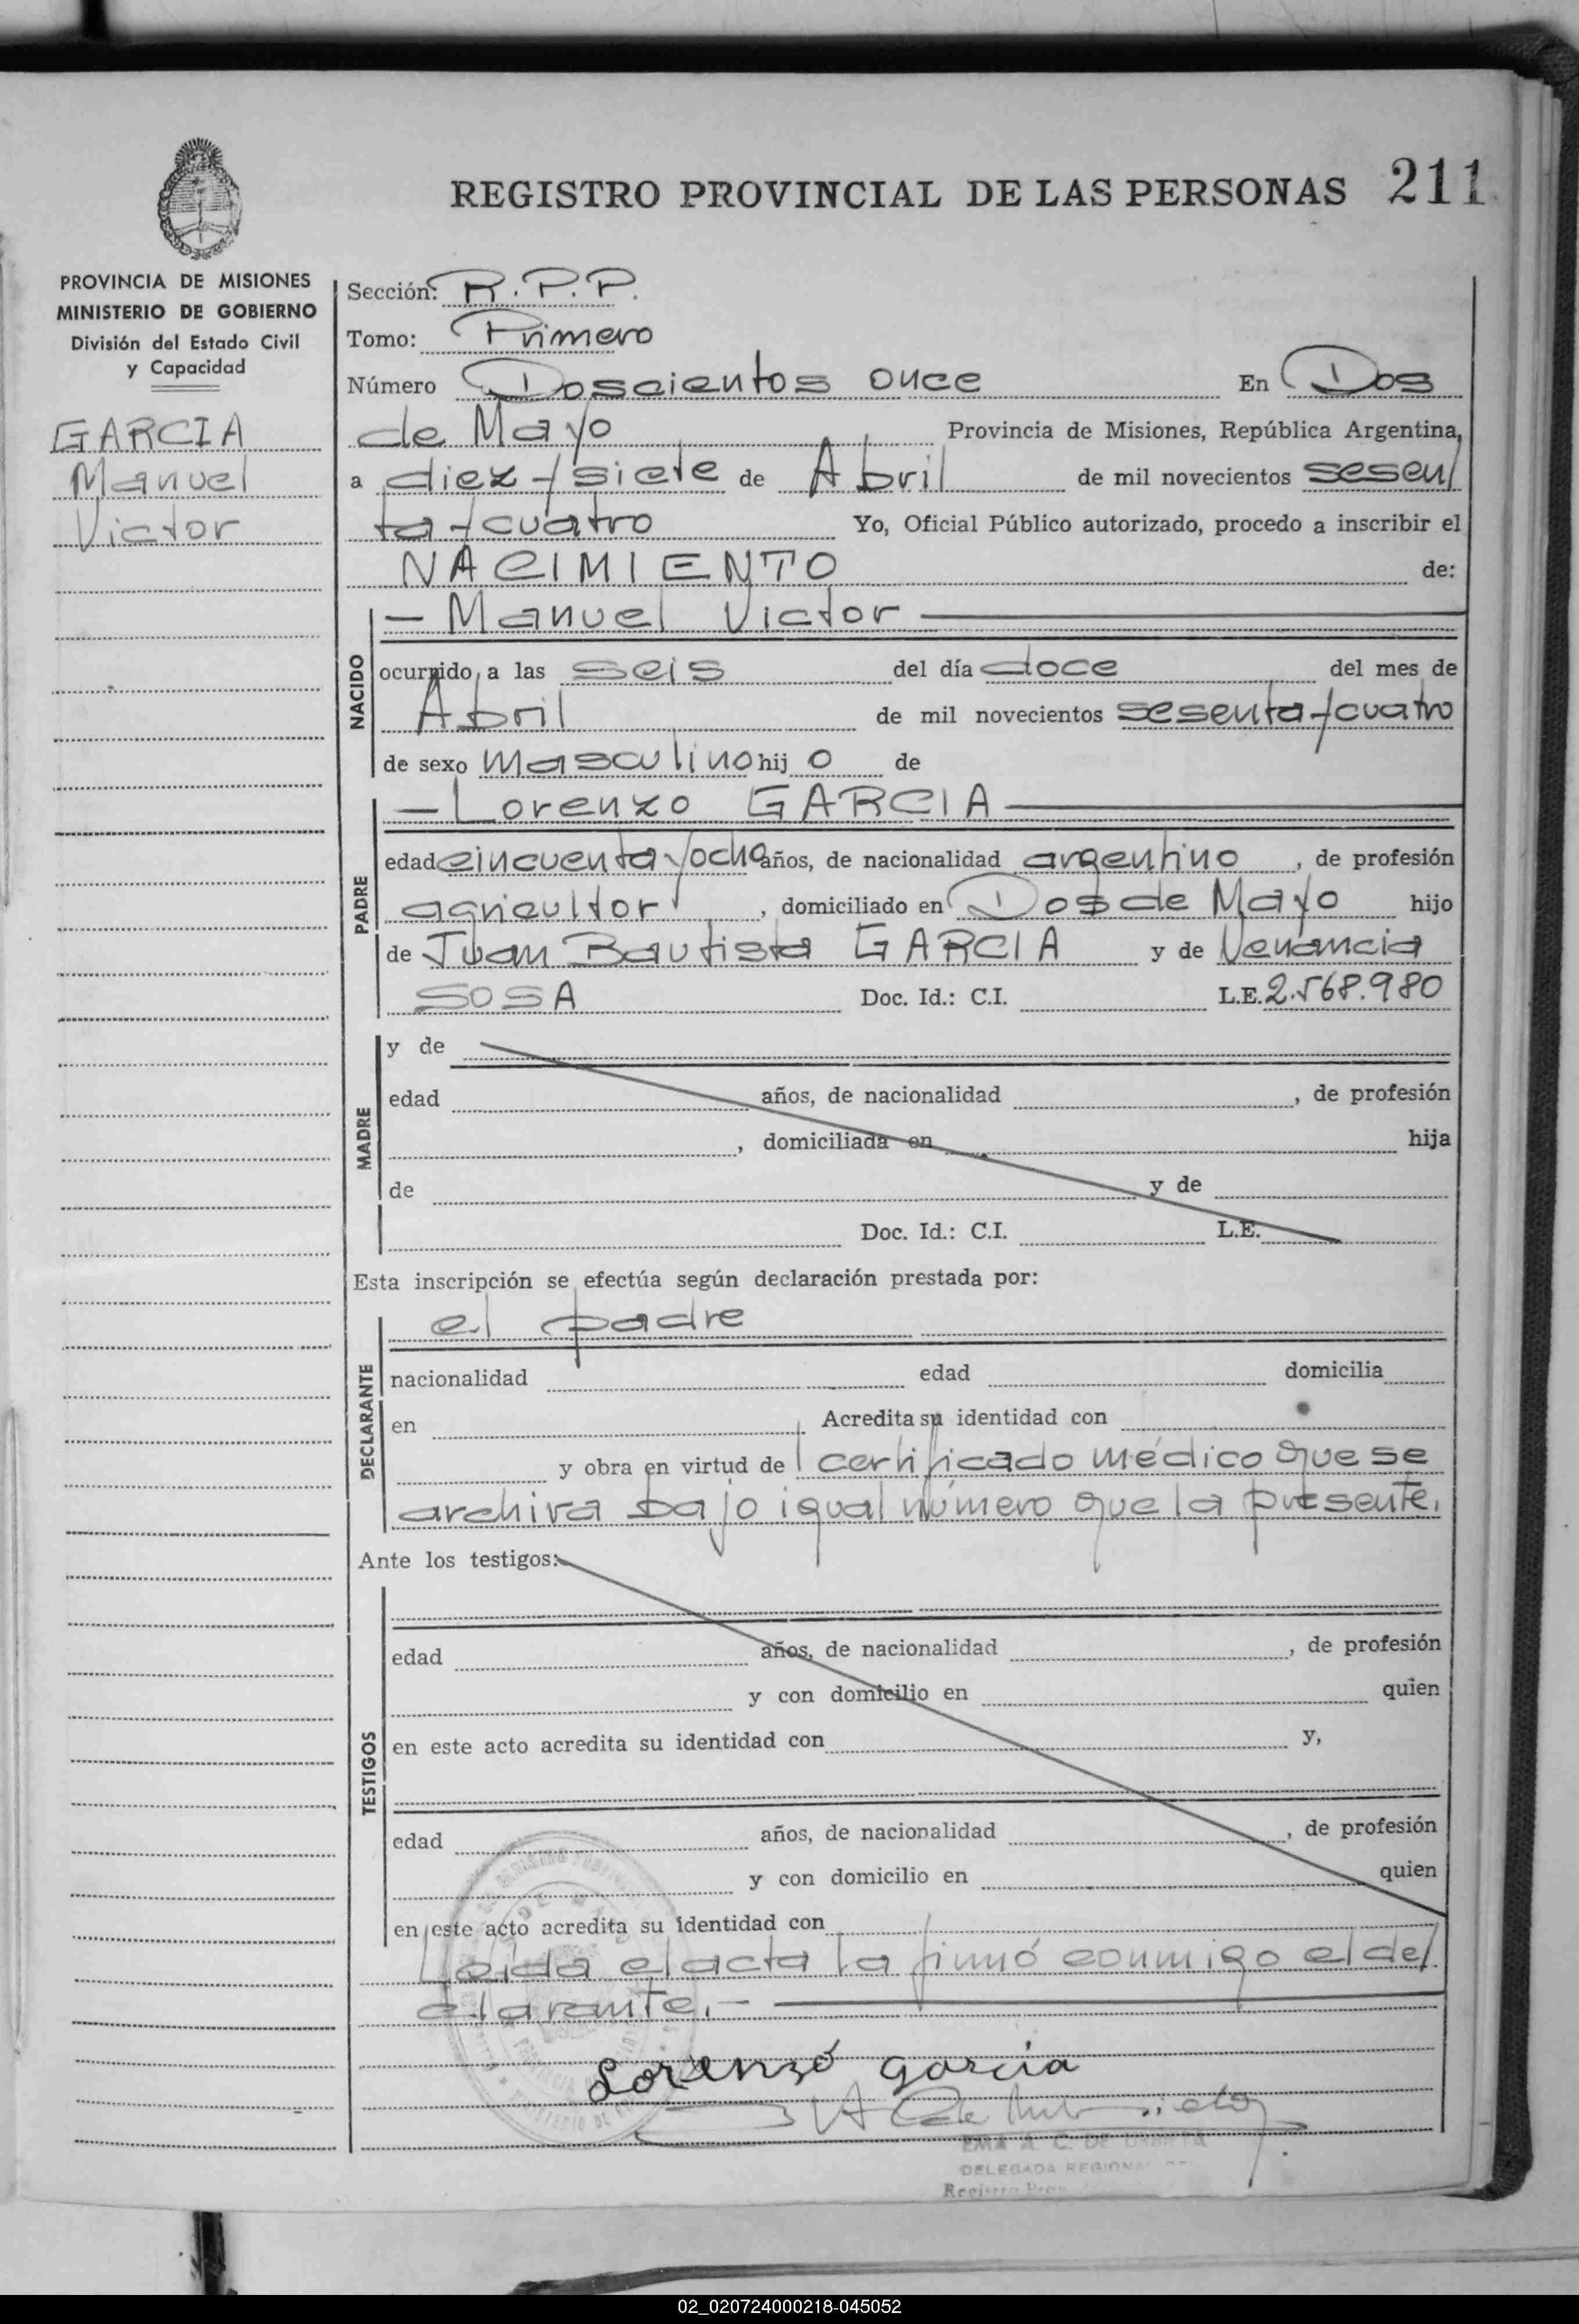 REGISTRO PROVINCIAL DE LAS PERSONAS 211
PROVINCIA DE MISIONES
MINISTERIO DE GOBIERNO
División del Estado Civil
y Capacidad
GARCIA
Manuel
Victor
Sección: R.P.P.
Tomo: Primero
Número Doscientos once En Dos
de Mayo Provincia de Misiones, República Argentina,
a diez y siete de Abril de mil novecientos sesen/
ta y cuatro Yo, Oficial Público autorizado, procedo a inscribir el
NACIMIENTO de:
NACIDO
— Manuel Victor —
ocurrido a las seis del día doce del mes de
Abril de mil novecientos sesenta y cuatro
de sexo masculino hij o de
PADRE
— Lorenzo GARCIA —
edad cincuenta y ocho años, de nacionalidad argentino, de profesión
agricultor, domiciliado en Dos de Mayo hijo
de Juan Bautista GARCIA y de Venancia
SOSA Doc. Id.: C.I. L.E. 2.568.980
MADRE
y de
edad años, de nacionalidad , de profesión
, domiciliada en hija
de y de
Doc. Id.: C.I. L.E.
Esta inscripción se efectúa según declaración prestada por:
DECLARANTE
el padre
nacionalidad edad domicilia
en Acredita su identidad con
y obra en virtud de certificado médico que se
archiva bajo igual número que la presente.
Ante los testigos:
TESTIGOS
edad años, de nacionalidad , de profesión
y con domicilio en quien
en este acto acredita su identidad con y,
edad años, de nacionalidad , de profesión
y con domicilio en quien
en este acto acredita su identidad con
Leída el acta la firmó conmigo el de/
clarante.—
Lorenzo Garcia
EMA A. C. DE
DELEGADA REGIONAL
Registro Prov
02_020724000218-045052